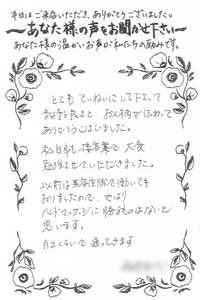 本日はご来店いただき、ありがとうございました。
〜あなた様の声をお聞かせ下さい〜
あなた様の温かいお声が私たちの励みです。
とても ていねいにして下さって
お人柄が伝わって
ありがとうございました。
私自身も接客業で 大変
勉強させていただきました。
以前は で働いても
おりましたので、やはり
ハンドマッサージに勝るものはないと
思います。
月2くらいで 通ってきます